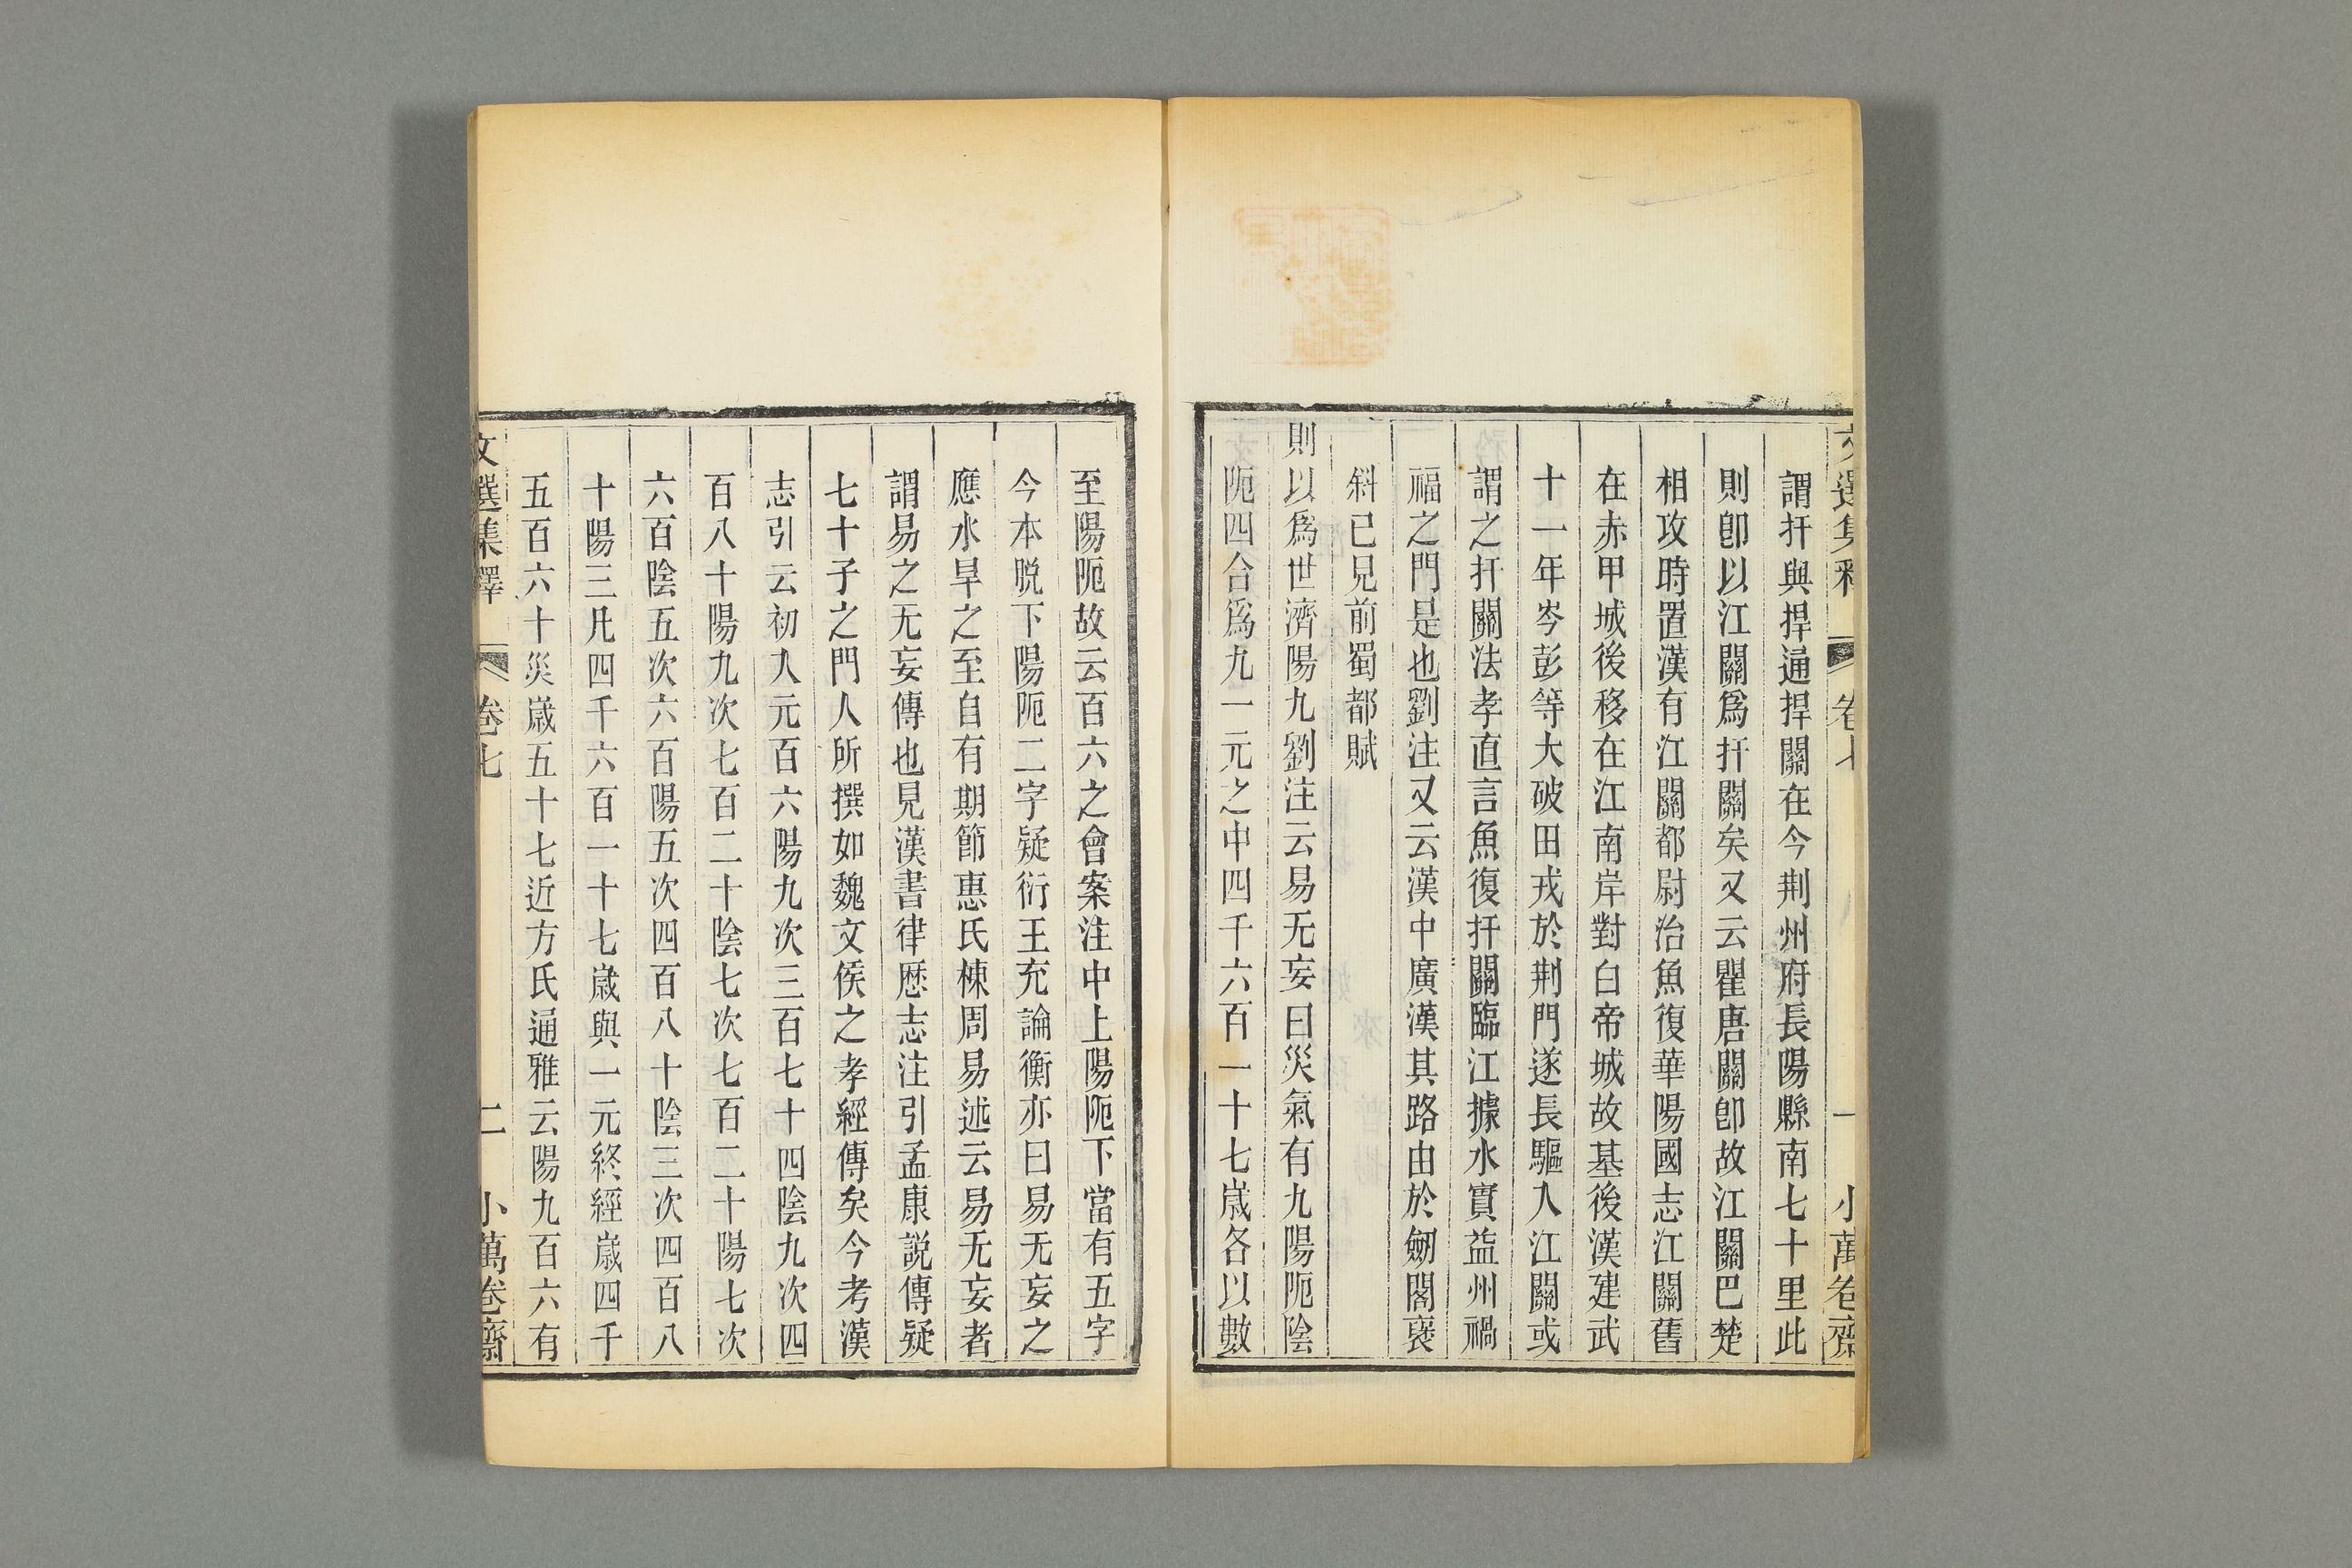 文選集釋 卷七 一 小萬卷齋
謂扞與捍通捍關在今荆州府長陽縣南七十里此
則卽以江關爲扞關矣又云瞿唐關卽故江關巴楚
相攻時置漢有江關都尉治魚復華陽國志江關舊
在赤甲城後移在江南岸對白帝城故基後漢建武
十一年岑彭等大破田戎於荆門遂長驅入江關或
謂之扞關法孝直言魚復扞關臨江據水實益州禍
福之門是也劉注又云漢中廣漢其路由於劒閣褒
斜已見前蜀都賦
則以爲世濟陽九劉注云易无妄曰災氣有九陽阨陰
阨四合爲九一元之中四千六百一十七嵗各以數
至陽阨故云百六之會案注中上陽阨下當有五字
今本脱下陽阨二字疑衍王充論衡亦曰易无妄之
應水旱之至自有期節惠氏棟周易述云易无妄者
謂易之无妄傳也見漢書律歷志注引孟康説傳疑
七十子之門人所撰如魏文侯之孝經傳矣今考漢
志引云初入元百六陽九次三百七十四陰九次四
百八十陽九次七百二十陰七次七百二十陽七次
六百陰五次六百陽五次四百八十陰三次四百八
十陽三凡四千六百一十七嵗與一元終經嵗四千
五百六十災嵗五十七近方氏通雅云陽九百六有
文選集釋 卷七 二 小萬卷齋